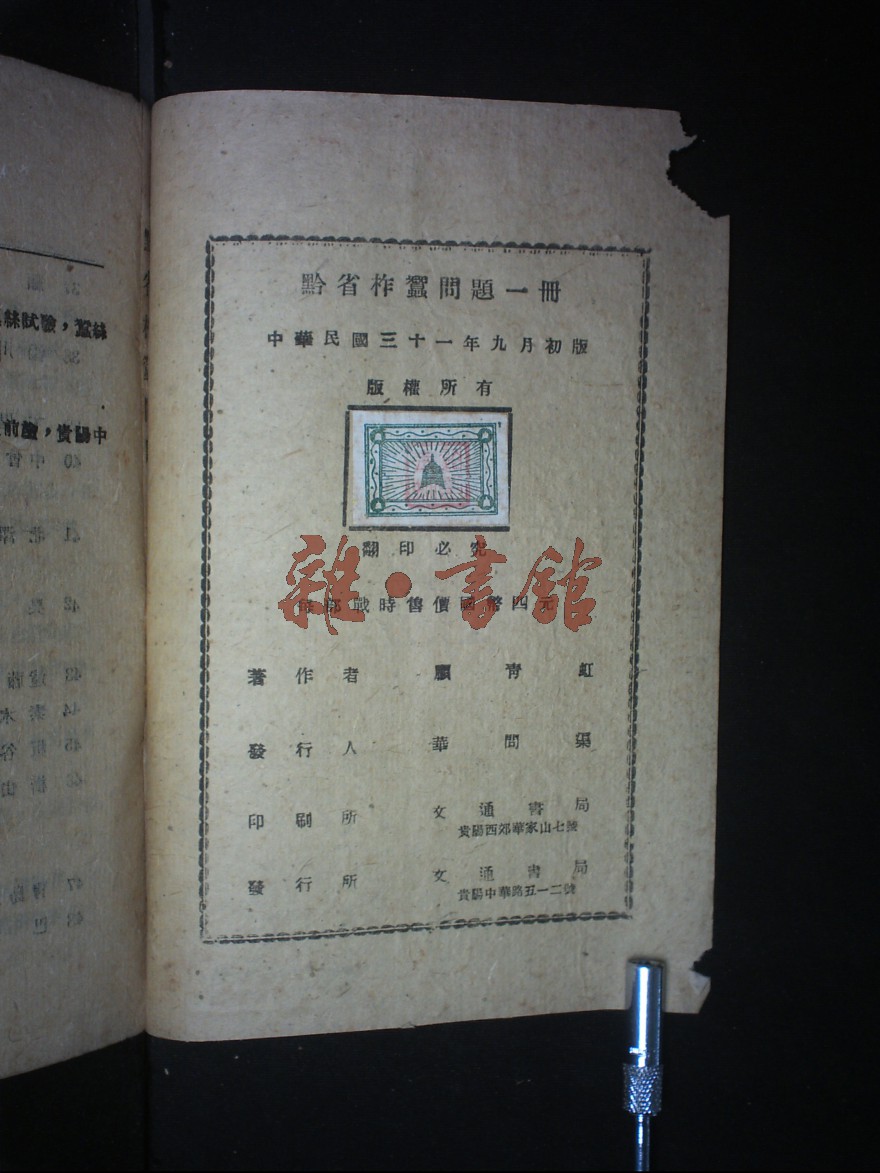 黔省柞蠶問題一冊
中華民國三十一年九月初版
版權所有
翻印必究
每部戰時售價國幣四元
著作者 顧青虹
發行人 華問渠
印刷所 文通書局
貴陽西郊華家山七號
發行所 文通書局
貴陽中華路五一二號
雜·書館
絲試驗，蠶絲
前證，貴陽中